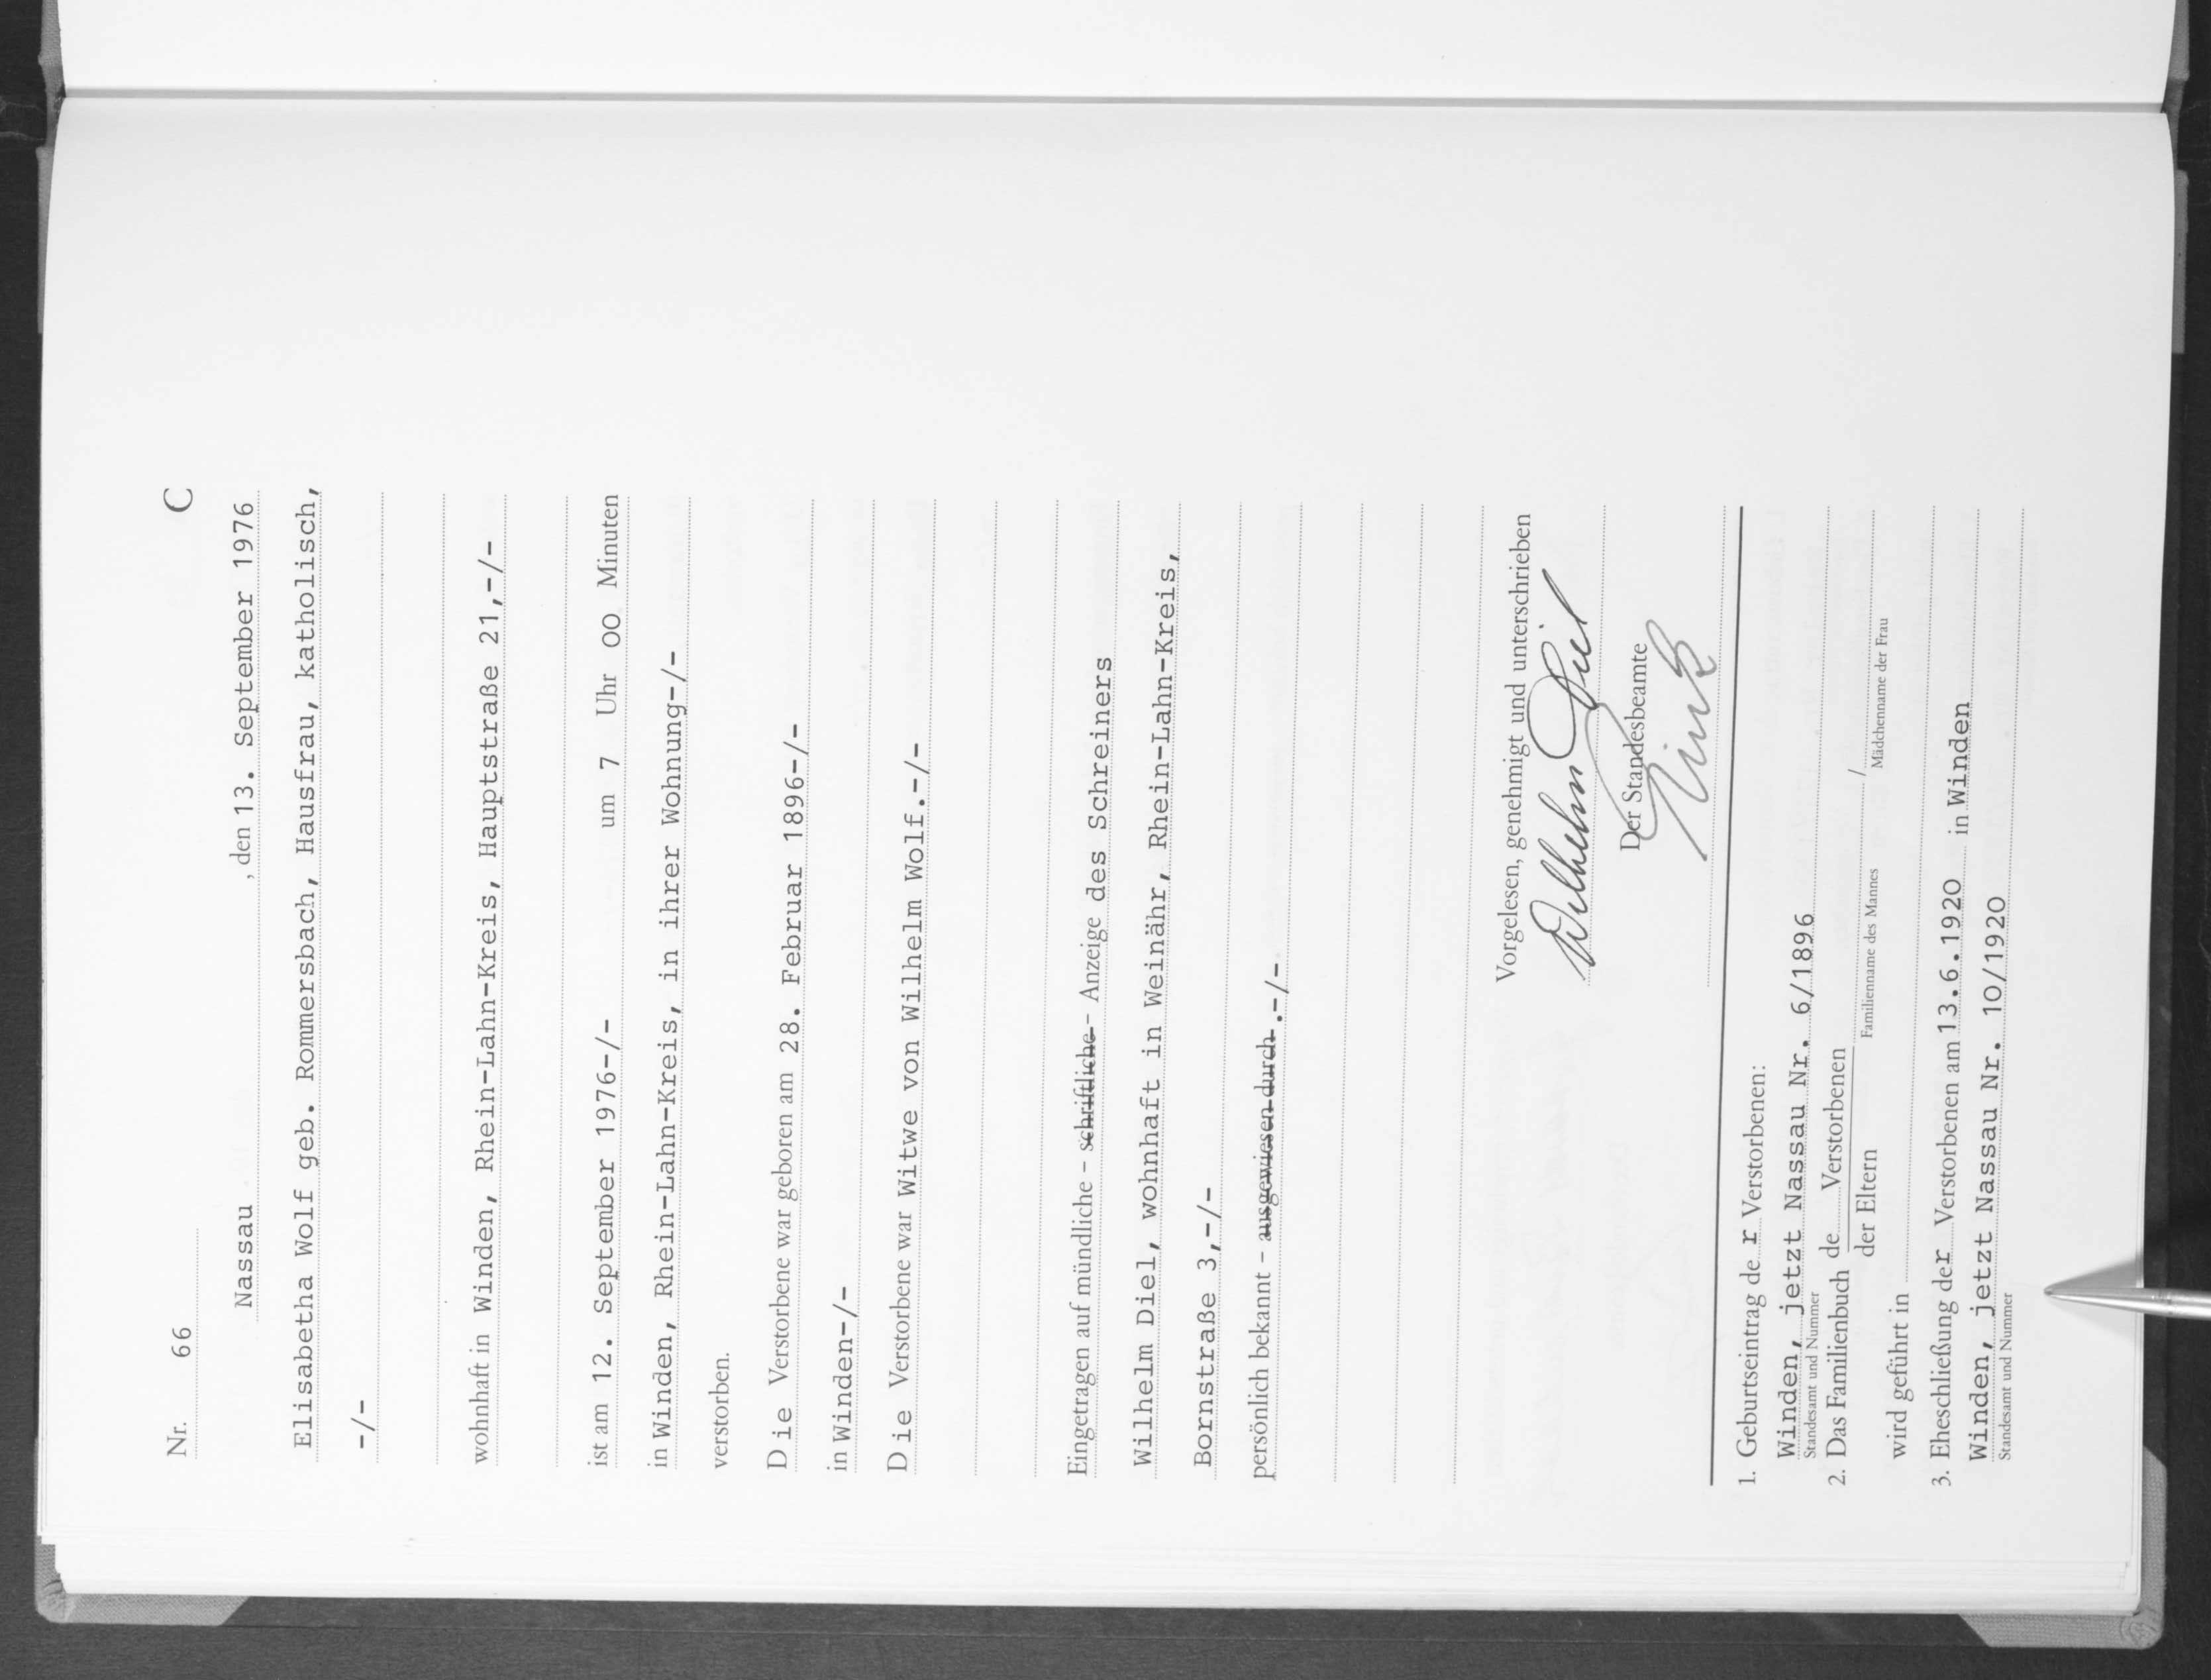 Nr. 66 C
Nassau , den 13. September 1976
Elisabetha Wolf geb. Rommersbach, Hausfrau, katholisch,
-/-
wohnhaft in Winden, Rhein-Lahn-Kreis, Hauptstraße 21,-/-
ist am 12. September 1976-/- um 7 Uhr 00 Minuten
in Winden, Rhein-Lahn-Kreis, in ihrer Wohnung-/-
verstorben.
Die Verstorbene war geboren am 28. Februar 1896-/-
in Winden-/-
Die Verstorbene war Witwe von Wilhelm Wolf.-/-
Eingetragen auf mündliche - schriftliche - Anzeige des Schreiners
Wilhelm Diel, wohnhaft in Weinähr, Rhein-Lahn-Kreis,
Bornstraße 3,-/-
persönlich bekannt - ausgewiesen durch.-/-
Vorgelesen, genehmigt und unterschrieben
Wilhelm Diel
Der Standesbeamte
1. Geburtseintrag der Verstorbenen:
Winden, jetzt Nassau Nr. 6/1896
Standesamt und Nummer
2. Das Familienbuch de Verstorbenen
der Eltern /
Familienname des Mannes Mädchenname der Frau
wird geführt in
3. Eheschließung der Verstorbenen am 13.6.1920 in Winden
Winden, jetzt Nassau Nr. 10/1920
Standesamt und Nummer